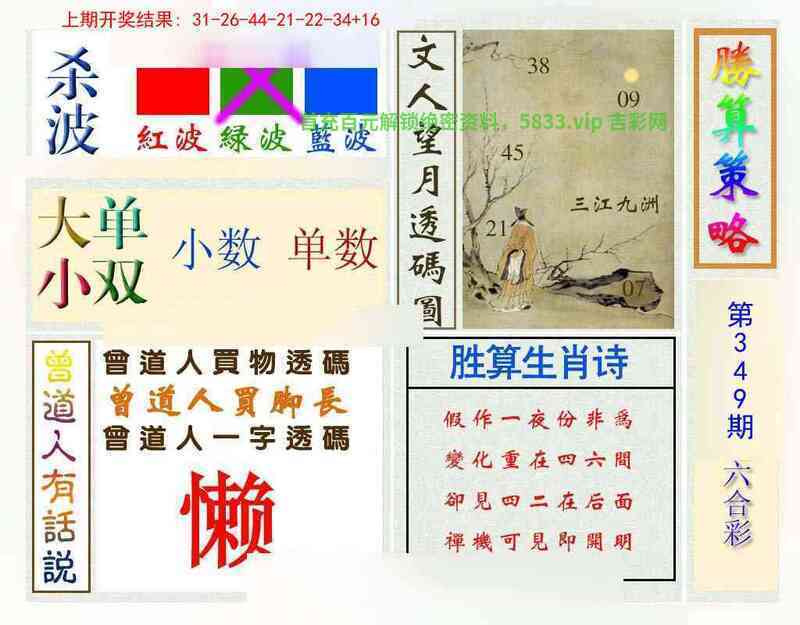 上期开奖结果：31-26-44-21-22-34+16
杀波
紅波 緑波 藍波
首充百元解锁绝密资料，5833.vip 吉彩网
大单
小双
小数 单数
文人望月透碼圖
38
09
45
三江九洲
21
07
勝算策略
第349期
六合彩
曾道人有話説
曾道人買物透碼
曾道人買脚長
曾道人一字透碼
懒
胜算生肖诗
假作一夜份非爲
變化重在四六間
卻見四二在后面
禪機可見即開明